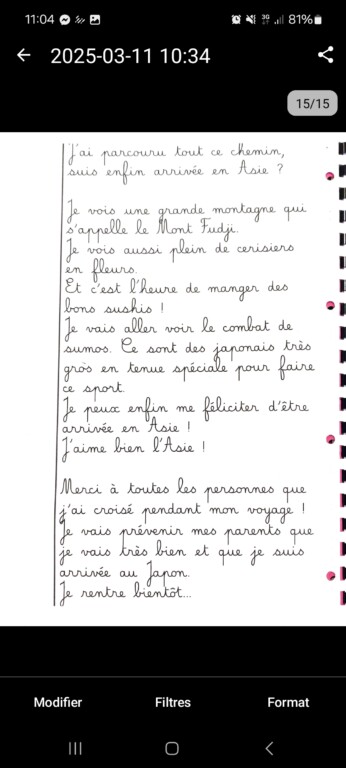 11:04
3G
81%
2025-03-11 10:34
15/15
J'ai parcouru tout ce chemin,
suis enfin arrivée en Asie ?
Je vois une grande montagne qui
s'appelle le Mont Fudji.
Je vois aussi plein de cerisiers
en fleurs.
Et c'est l'heure de manger des
bons sushis !
Je vais aller voir le combat de
sumos. Ce sont des japonais très
gros en tenue spéciale pour faire
ce sport.
Je peux enfin me féliciter d'être
arrivée en Asie !
J'aime bien l'Asie !
Merci à toutes les personnes que
j'ai croisé pendant mon voyage !
Je vais prévenir mes parents que
je vais très bien et que je suis
arrivée au Japon.
Je rentre bientôt...
Modifier
Filtres
Format